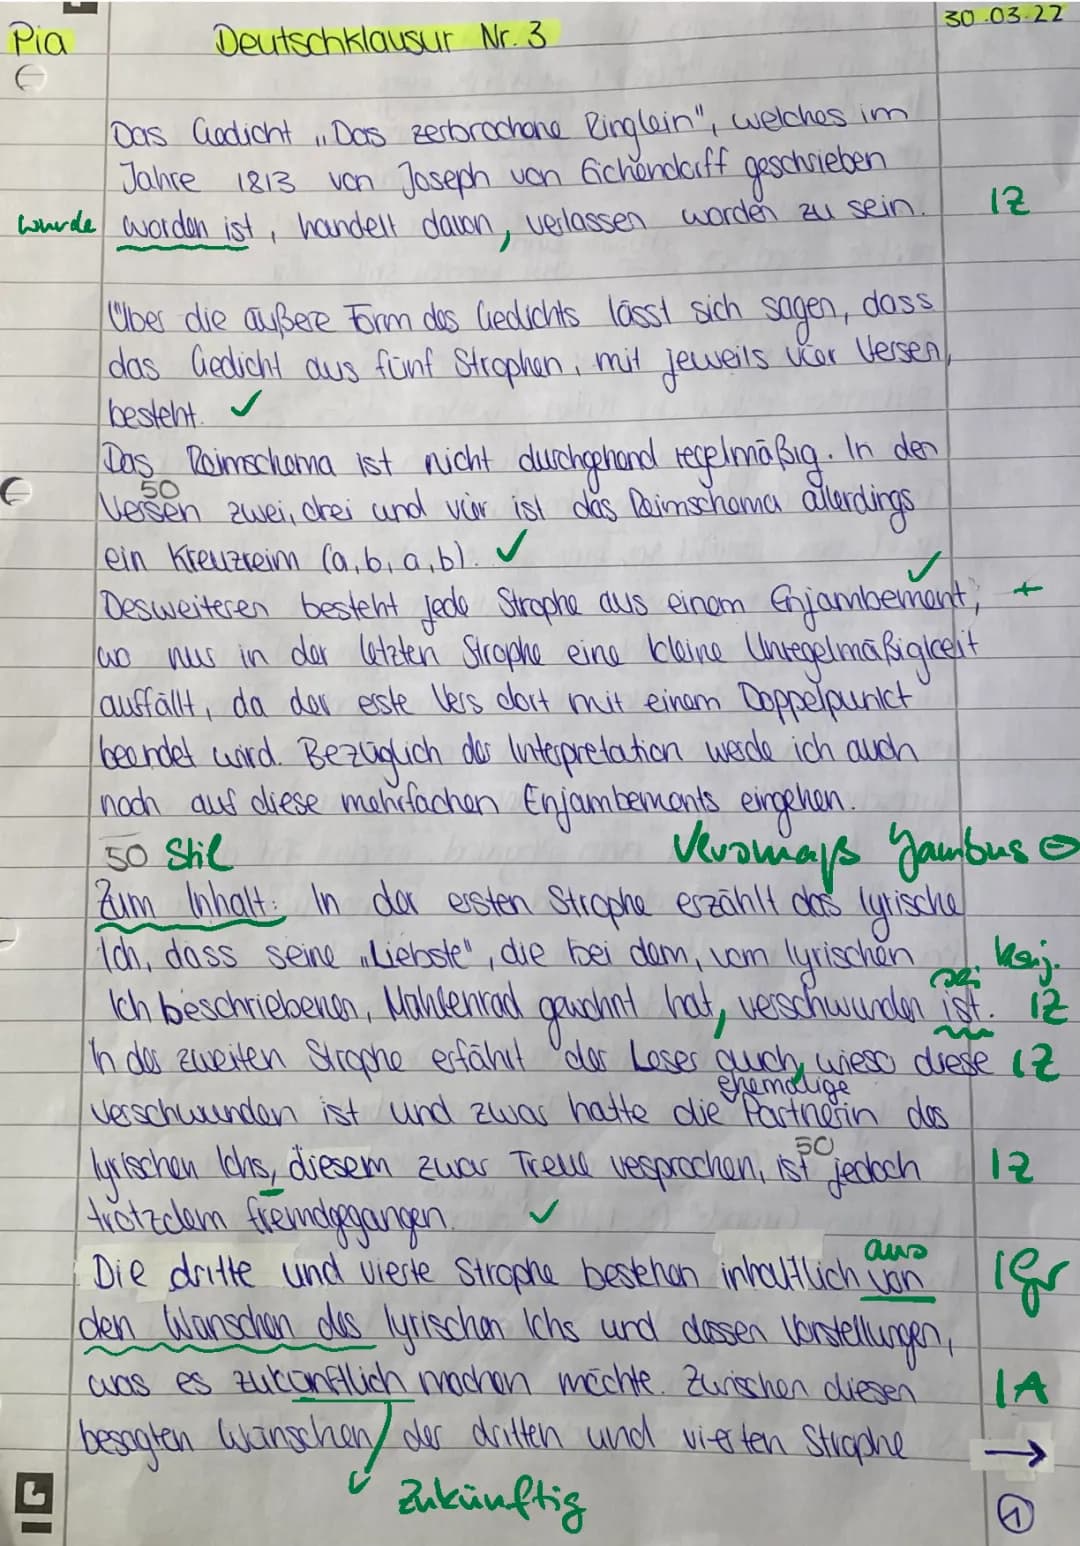 Pia Deutschklausur Nr. 3 30.03.22
Das Gedicht „Das zerbrochene Ringlein", welches im
Jahre 1813 von Joseph von Eichendorff geschrieben
wurde worden ist, handelt davon, verlassen worden zu sein. 1Z
Über die äußere Form des Gedichts lässt sich sagen, dass
das Gedicht aus fünf Strophen, mit jeweils vier Versen,
besteht. ✓
Das Reimschema ist nicht durchgehend regelmäßig. In den
50
Versen zwei, drei und vier ist das Reimschema allerdings
ein Kreuzreim (a, b, a, b). ✓
Desweiteren besteht jede Strophe aus einem Enjambement, ✓ +
wo nur in der letzten Strophe eine kleine Unregelmäßigkeit
auffällt, da der erste Vers dort mit einem Doppelpunkt
beendet wird. Bezüglich der Interpretation werde ich auch
noch auf diese mehrfachen Enjambements eingehen.
50 Stil Versmaß Jambus ⊖
Zum Inhalt: In der ersten Strophe erzählt das lyrische
Ich, dass seine „Liebste", die bei dem, vom lyrischen Konj.
sei
Ich beschriebenen, Mühlenrad gewohnt hat, verschwunden ist. 1Z
In der zweiten Strophe erfährt der Leser auch, wieso diese 1Z
ehemalige
verschwunden ist und zwar hatte die Partnerin des
50
lyrischen Ichs, diesem zwar Treue versprochen, ist jedoch 1Z
trotzdem fremdgegangen. ✓
aus
Die dritte und vierte Strophe bestehen inhaltlich von 1Gr
den Wünschen des lyrischen Ichs und dessen Vorstellungen,
was es zukünftlich machen möchte. Zwischen diesen 1A
besagten Wünschen/ der dritten und vierten Strophe →
zukünftig
1